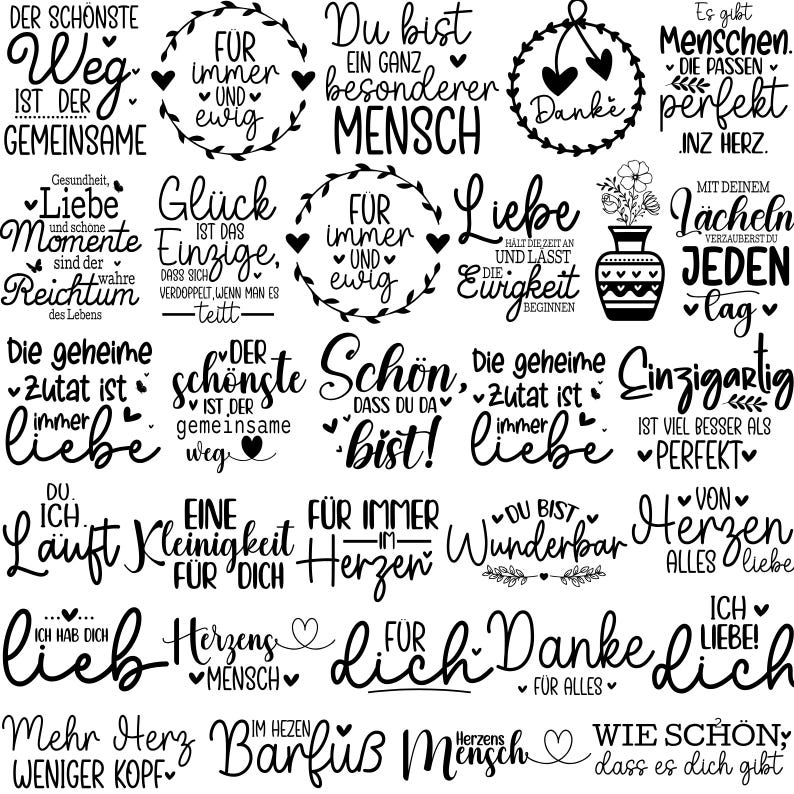 DER SCHÖNSTE
Weg
IST DER
GEMEINSAME
FÜR
immer
UND
ewig
Du bist
EIN GANZ
besonderer
MENSCH
Danke
Es gibt
Menschen.
DIE PASSEN
perfekt
.INZ HERZ.
Gesundheit,
Liebe
und schöne
Momente
sind der
wahre
Reichtum
des Lebens
Glück
IST DAS
Einzige,
DASS SICH
VERDOPPELT, WENN MAN ES
teitt
FÜR
immer
UND
ewig
Liebe
HÄLT DIE ZEIT AN
UND LÄSST
DIE
Ewigkeit
BEGINNEN
MIT DEINEM
Lächeln
VERZAUBERST DU
JEDEN
tag
Die geheime
Zutat ist
immer
liebe
DER
schönste
IST DER
gemeinsame
weg
Schön,
DASS DU DA
bist!
Die geheime
Zutat ist
immer
liebe
Einzigartig
IST VIEL BESSER ALS
PERFEKT
DU.
ICH.
Läuft
EINE
Kleinigkeit
FÜR DICH
FÜR IMMER
IM
Herzen
DU BIST
Wunderbar
VON
Herzen
ALLES liebe
...♥...
ICH HAB DICH
lieb
Herzens
MENSCH
FÜR
dich
Danke
FÜR ALLES
ICH
LIEBE!
dich
Mehr Herz
WENIGER KOPF
IM HEZEN
Barfuß
Herzens
Mensch
WIE SCHÖN,
2
dass es dich gibt